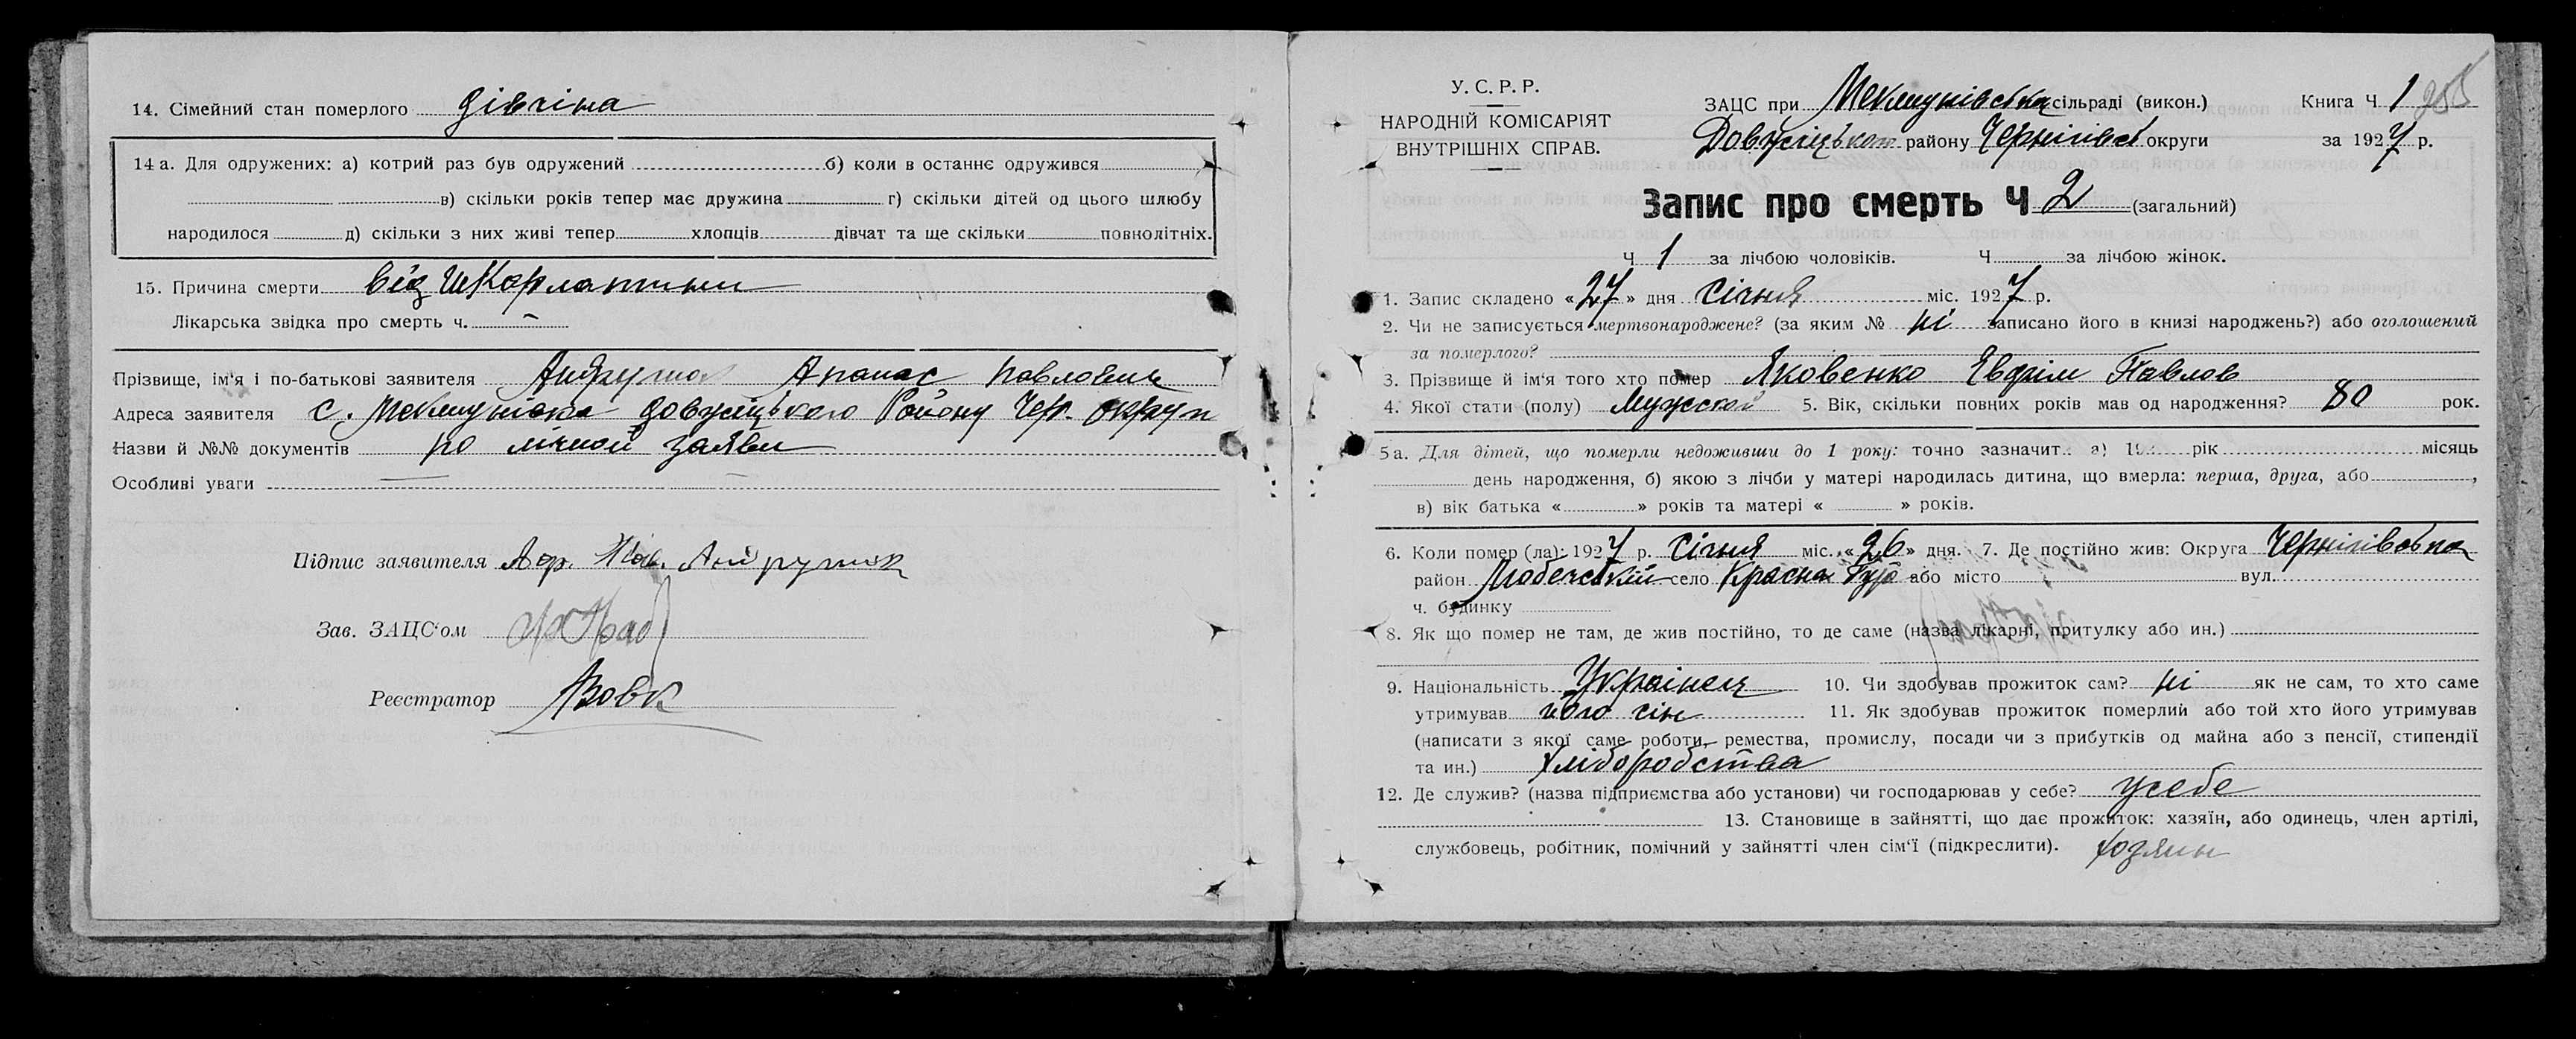 14. Сімейний стан померлого дівчіна
14 а. Для одружених: а) котрий раз був одружений б) коли в останнє одружився
в) скільки років тепер має дружина г) скільки дітей од цього шлюбу
народилося д) скільки з них живі тепер хлопців дівчат та ще скільки повнолітніх.
15. Причина смерти від шкорлатини
Лікарська звідка про смерть ч. —
Прізвище, ім'я і по-батькові заявителя Андрушок Апанас Павлович
Адреса заявителя с. Мекшунівка Довжицького Району Чер. округи
Назви й №№ документів по лічной заяви
Особливі уваги —
Підпис заявителя Пав. Андрушок
Зав. ЗАЦС'ом
Реєстратор Вовк
У. С. Р. Р.
НАРОДНІЙ КОМІСАРІЯТ
ВНУТРІШНІХ СПРАВ.
ЗАЦС при Мекшунівська сільраді (викон.) Книга Ч 1
Довжицького району Чернігівсь округи за 1927 р.
Запис про смерть Ч 2 (загальний)
Ч 1 за лічбою чоловіків. Ч за лічбою жінок.
1. Запис складено «27» дня Січня міс. 1927 р.
2. Чи не записується мертвонароджене? (за яким № ні записано його в книзі народжень?) або оголошений
за померлого?
3. Прізвище й ім'я того хто помер Яковенко Евфім Павлов
4. Якої стати (полу) Мужской 5. Вік, скільки повних років мав од народження? 80 рок.
5 а. Для дітей, що померли недоживши до 1 року: точно зазначит а) 19 рік місяць
день народження, б) якою з лічби у матері народилась дитина, що вмерла: перша, друга, або ,
в) вік батька « » років та матері « » років.
6. Коли помер (ла): 1927 р. Січня міс. «26» дня. 7. Де постійно жив: Округа Чернігівська
район Любечський село Красна Гура або місто вул.
ч. будинку
8. Як що помер не там, де жив постійно, то де саме (назва лікарні, притулку або ин.)
9. Національність Українец 10. Чи здобував прожиток сам? ні як не сам, то хто саме
утримував його сін 11. Як здобував прожиток померлий або той хто його утримував
(написати з якої саме роботи, ремества, промислу, посади чи з прибутків од майна або з пенсії, стипендії
та ин.) Хліборобства
12. Де служив? (назва підприємства або установи) чи господарював у себе? усебе
13. Становище в зайнятті, що дає прожиток: хазяїн, або одинець, член артілі,
службовець, робітник, помічний у зайнятті член сім'ї (підкреслити). хозяин